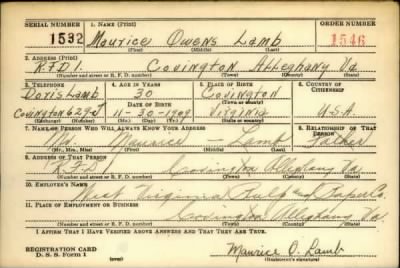 SERIAL NUMBER 1. NAME (Print) ORDER NUMBER
1532 Maurice Owens Lamb 1546
(First) (Middle) (Last)
2. ADDRESS (Print)
R.F.D 1. Covington Alleghany Va.
(Number and street or R. F. D. number) (Town) (County) (State)
3. TELEPHONE 4. AGE IN YEARS 5. PLACE OF BIRTH 6. COUNTRY OF CITIZENSHIP
Doris Lamb 30 Covington
DATE OF BIRTH (Town or county)
Covington 627-J 11-30-1909 Virginia U.S.A.
(Exchange) (Number) (Mo.) (Day) (Yr.) (State or country)
7. NAME OF PERSON WHO WILL ALWAYS KNOW YOUR ADDRESS 8. RELATIONSHIP OF THAT PERSON
Mr. Maurice — Lamb Father
(Mr., Mrs., Miss) (First) (Middle) (Last)
9. ADDRESS OF THAT PERSON
R.F.D Covington Alleghany Va.
(Number and street or R. F. D. number) (Town) (County) (State)
10. EMPLOYER'S NAME
West Virginia Pulp and Paper Co.
11. PLACE OF EMPLOYMENT OR BUSINESS
Covington Alleghany Va.
(Number and street or R. F. D. number) (Town) (County) (State)
I AFFIRM THAT I HAVE VERIFIED ABOVE ANSWERS AND THAT THEY ARE TRUE.
REGISTRATION CARD
D. S. S. Form 1 Maurice O. Lamb
(Registrant's signature)